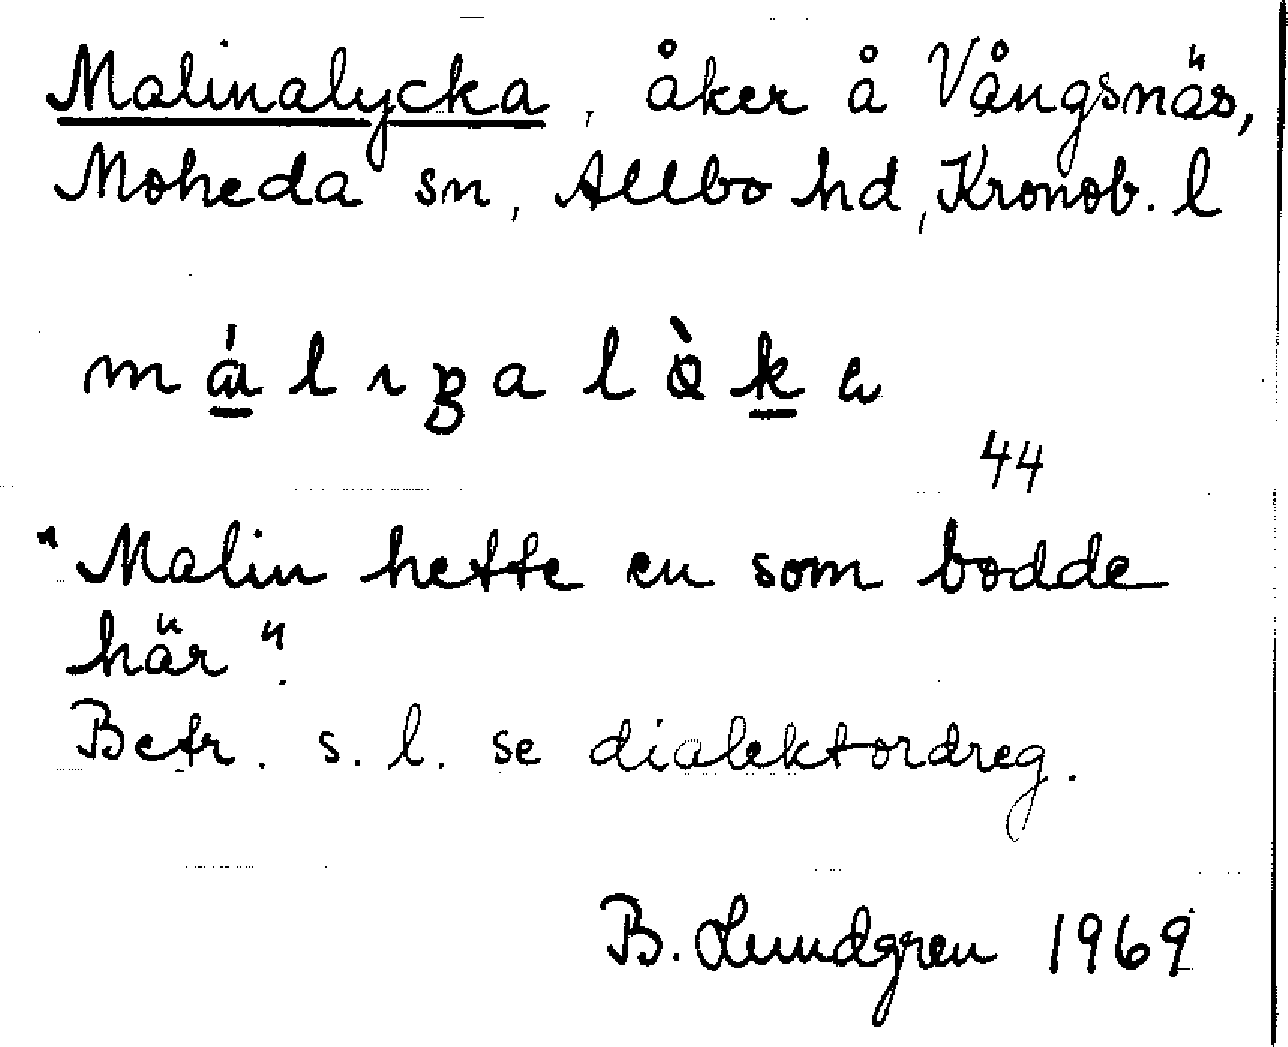 Malinalycka, åker å Vångsnäs,
Moheda sn, Allbo hd, Kronob. l
44
"Malin hette en som bodde
här".
Betr. s. l. se dialektordreg.
B. Lundgren 1969